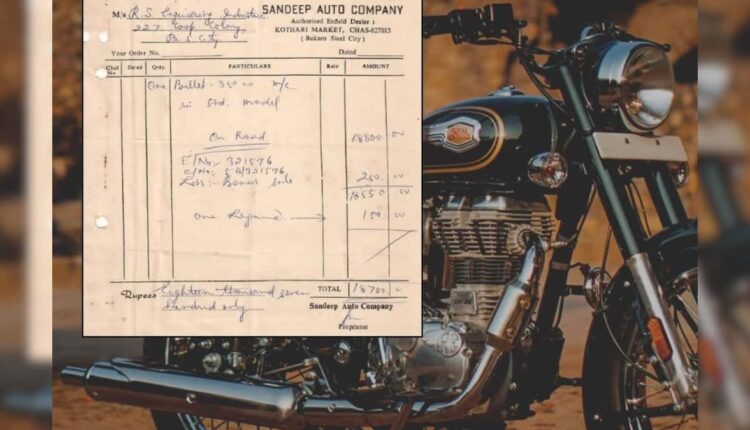 SANDEEP AUTO COMPANY
Authorised Enfield Dealer :
KOTHARI MARKET, CHAS-827013
( Bokaro Steel City )
M/s R.S. Engineering Industries
227 Coop Colony
B. S. City
Your Order No. Dated
Chal No. Dated Qnty. PARTICULARS Rate AMOUNT
One Bullet - 350 cc m/c
in Std. model
On Road 18800 00
E/No:- 321576
C/No: 5B/321576
Less:- Bonus 250 00
18550 00
One 150 00
Rupees Eighteen thousand seven TOTAL 18700
hundred only
Sandeep Auto Company
Proprietor
ROYAL ENFIELD